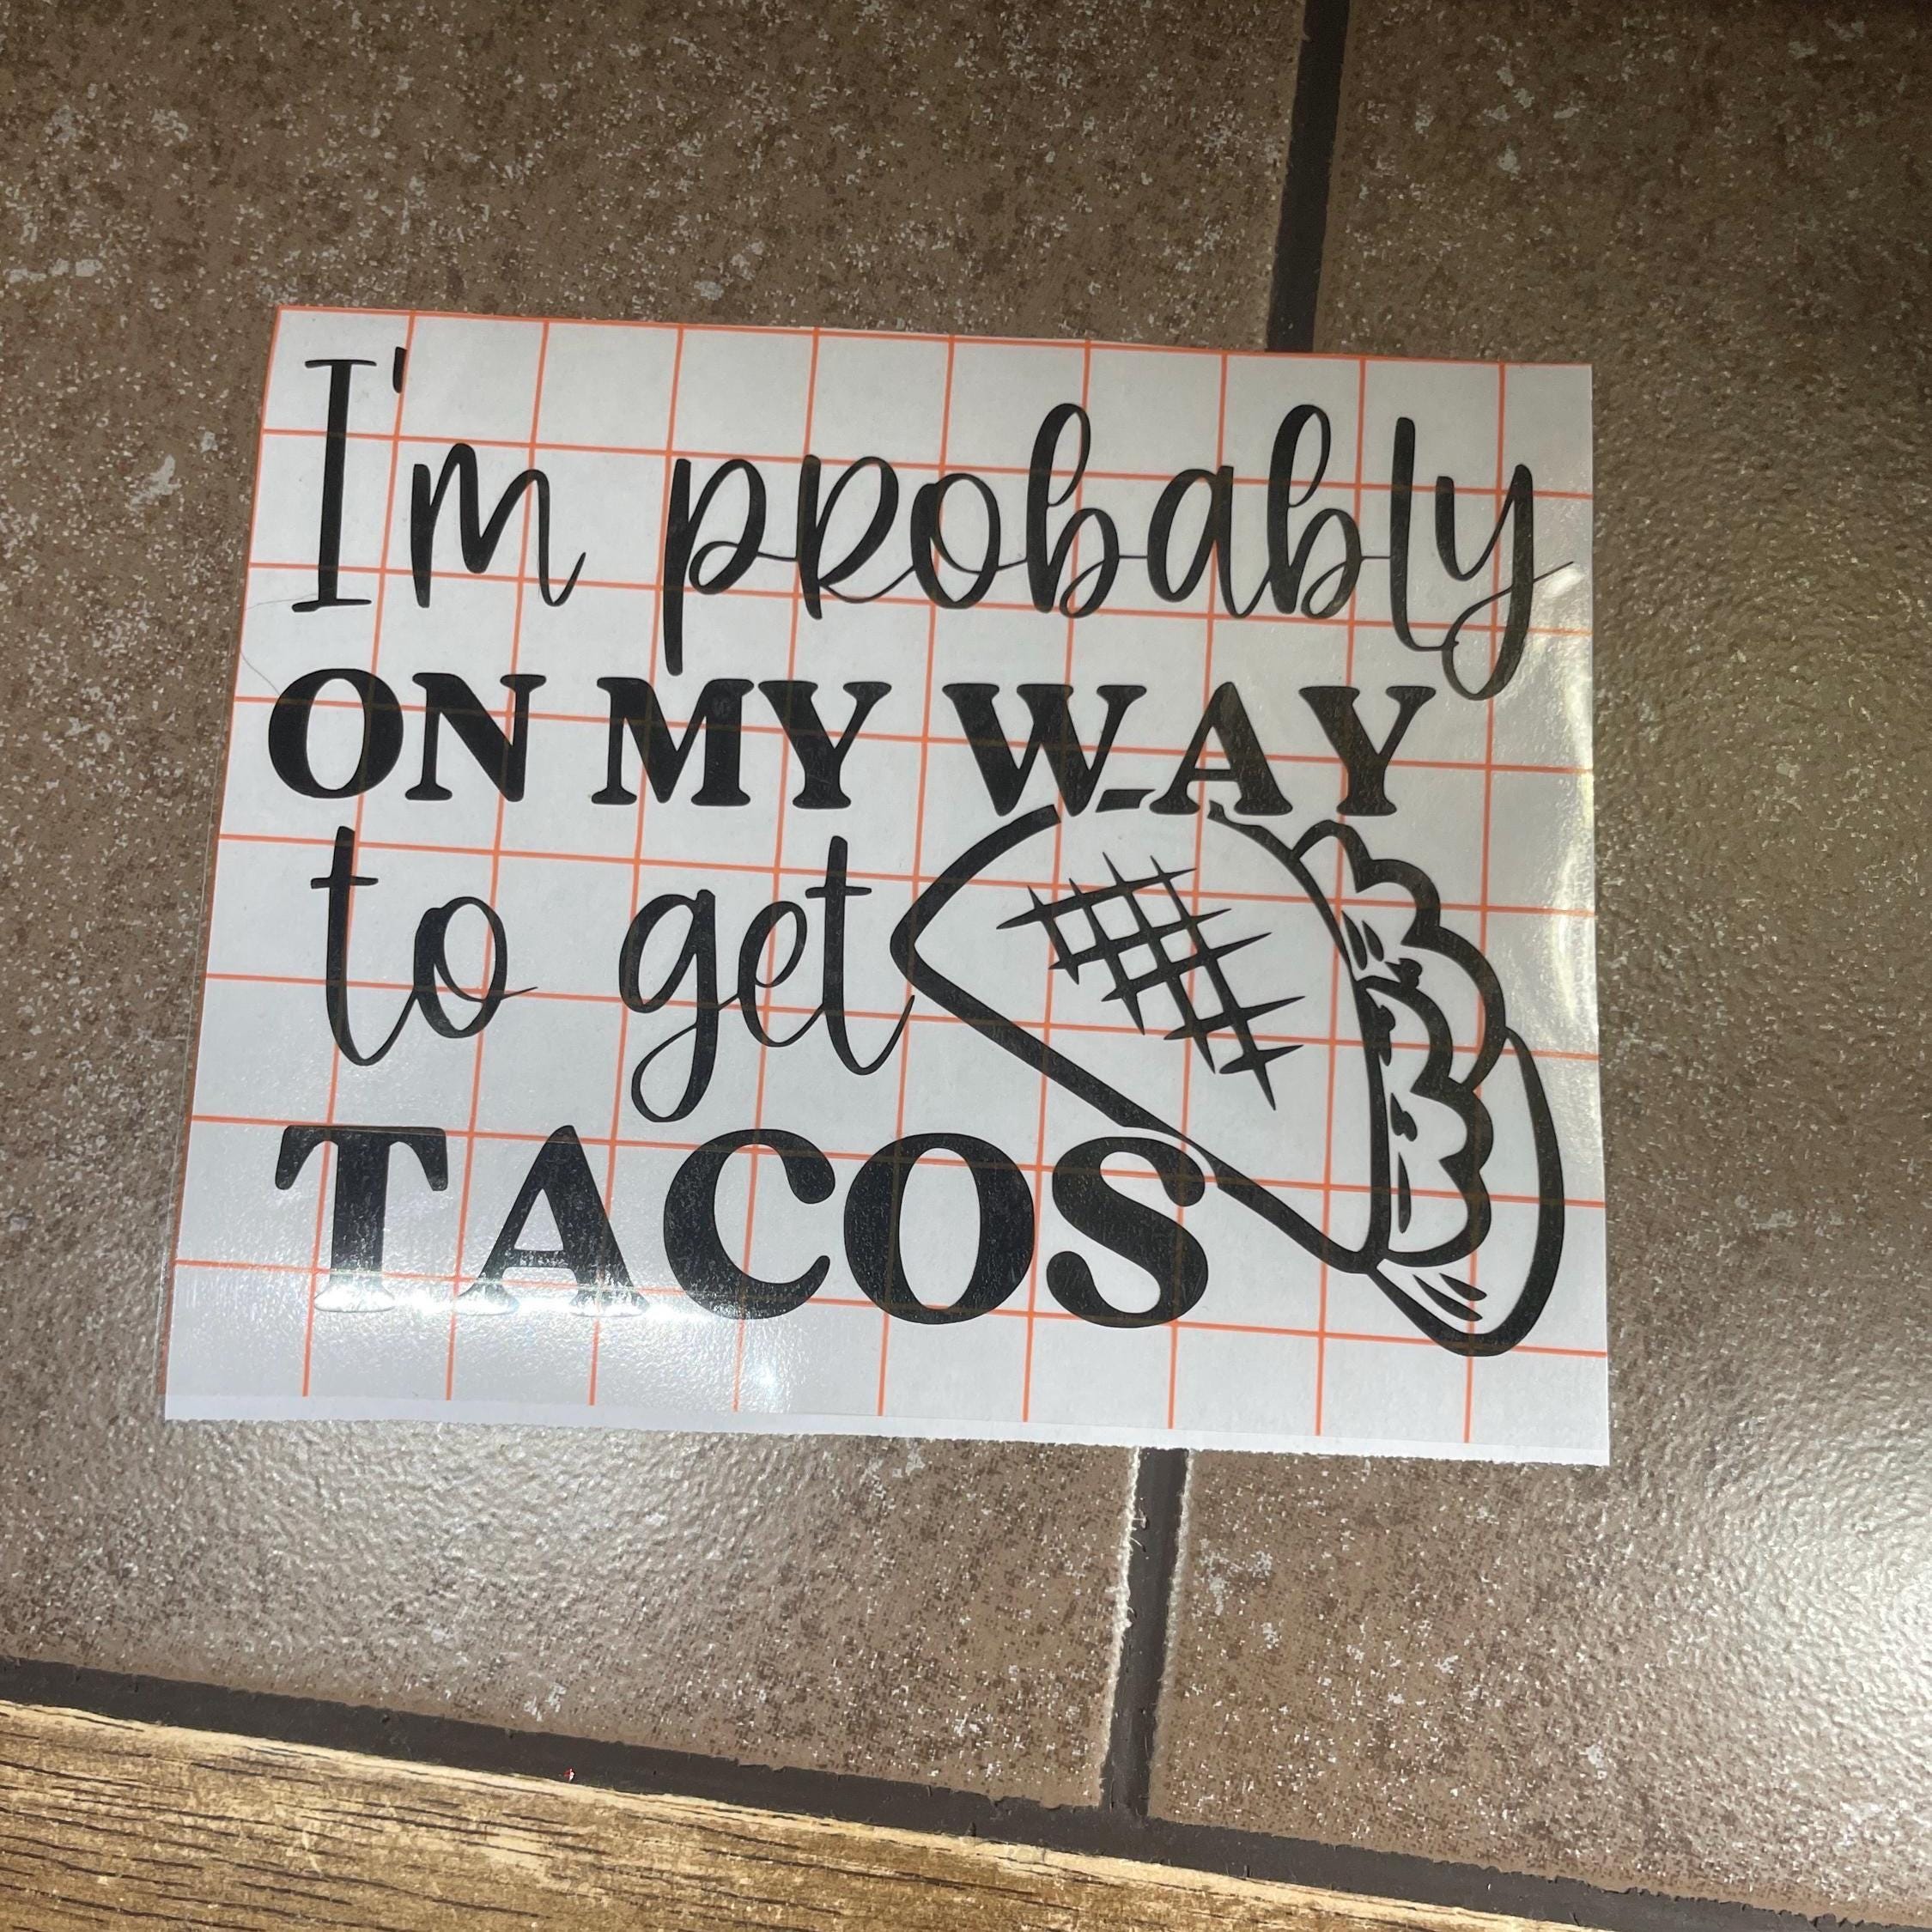 I'm probably
ON MY WAY
to get
TACOS